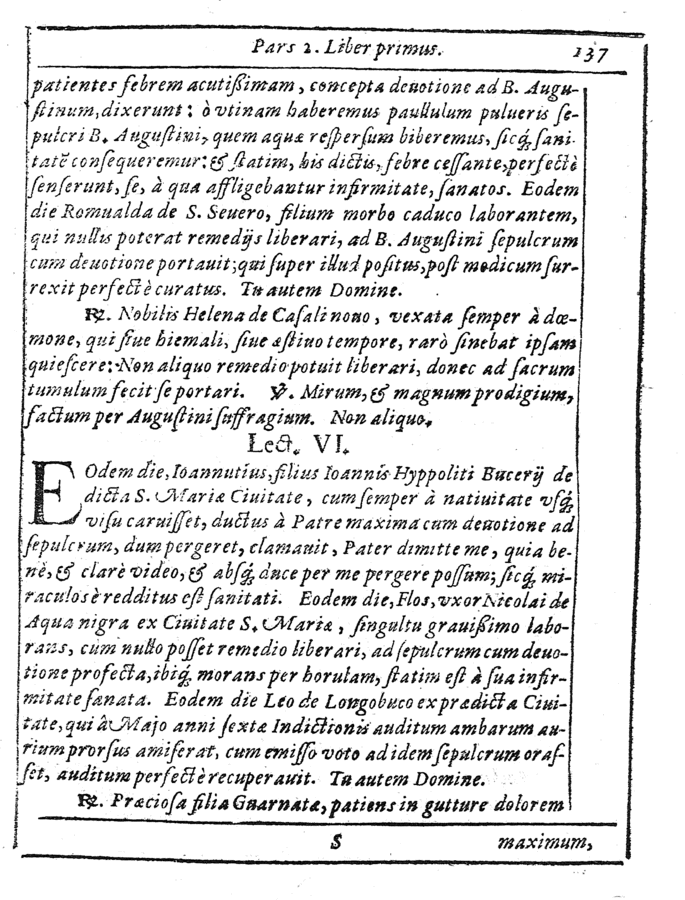 Pars 2. Liber primus. 137
patientes febrem acutißimam, concepta deuotione ad B. Augu-
ſtinum, dixerunt: ò vtinam haberemus paullulum pulueris ſe-
pulcri B. Auguſtini, quem aquæ reſperſum biberemus, ſicq́; ſani-
tatē conſequeremur: & ſtatim, his dictis, febre ceſſante, perfectè
ſenſerunt, ſe, à qua affligebantur infirmitate, ſanatos. Eodem
die Romualda de S. Seuero, filium morbo caduco laborantem,
qui nullis poterat remedijs liberari, ad B. Auguſtini ſepulcrum
cum deuotione portauit; qui ſuper illud poſitus, poſt modicum ſur-
rexit perfectè curatus. Tu autem Domine.
℞. Nobilis Helena de Caſali nouo, vexata ſemper à dœ-
mone, qui ſiue hiemali, ſiue æſtiuo tempore, rarò ſinebat ipſam
quieſcere: Non aliquo remedio potuit liberari, donec ad ſacrum
tumulum fecit ſe portari. ℣. Mirum, & magnum prodigium,
factum per Auguſtini ſuffragium. Non aliquo.
Lect. VI.
EOdem die, Ioannutius, filius Ioannis Hyppoliti Bucerij de
dicta S. Mariæ Ciuitate, cum ſemper à natiuitate vſq́;
viſu caruiſſet, ductus à Patre maxima cum deuotione ad
ſepulcrum, dum pergeret, clamauit, Pater dimitte me, quia be-
nè, & clarè video, & abſq́; duce per me pergere poſſum; ſicq́; mi-
raculosè redditus eſt ſanitati. Eodem die, Flos, vxor Nicolai de
Aqua nigra ex Ciuitate S. Mariæ, ſingultu grauißimo labo-
rans, cum nullo poſſet remedio liberari, ad ſepulcrum cum deuo-
tione profecta, ibiq́; morans per horulam, ſtatim eſt à ſua infir-
mitate ſanata. Eodem die Leo de Longobuco ex prædicta Ciui-
tate, qui à Majo anni ſextæ Indictionis auditum ambarum au-
rium prorſus amiſerat, cum emiſſo voto ad idem ſepulcrum oraſ-
ſet, auditum perfectè recuperauit. Tu autem Domine.
℞. Præcioſa filia Guarnatæ, patiens in gutture dolorem
S maximum,